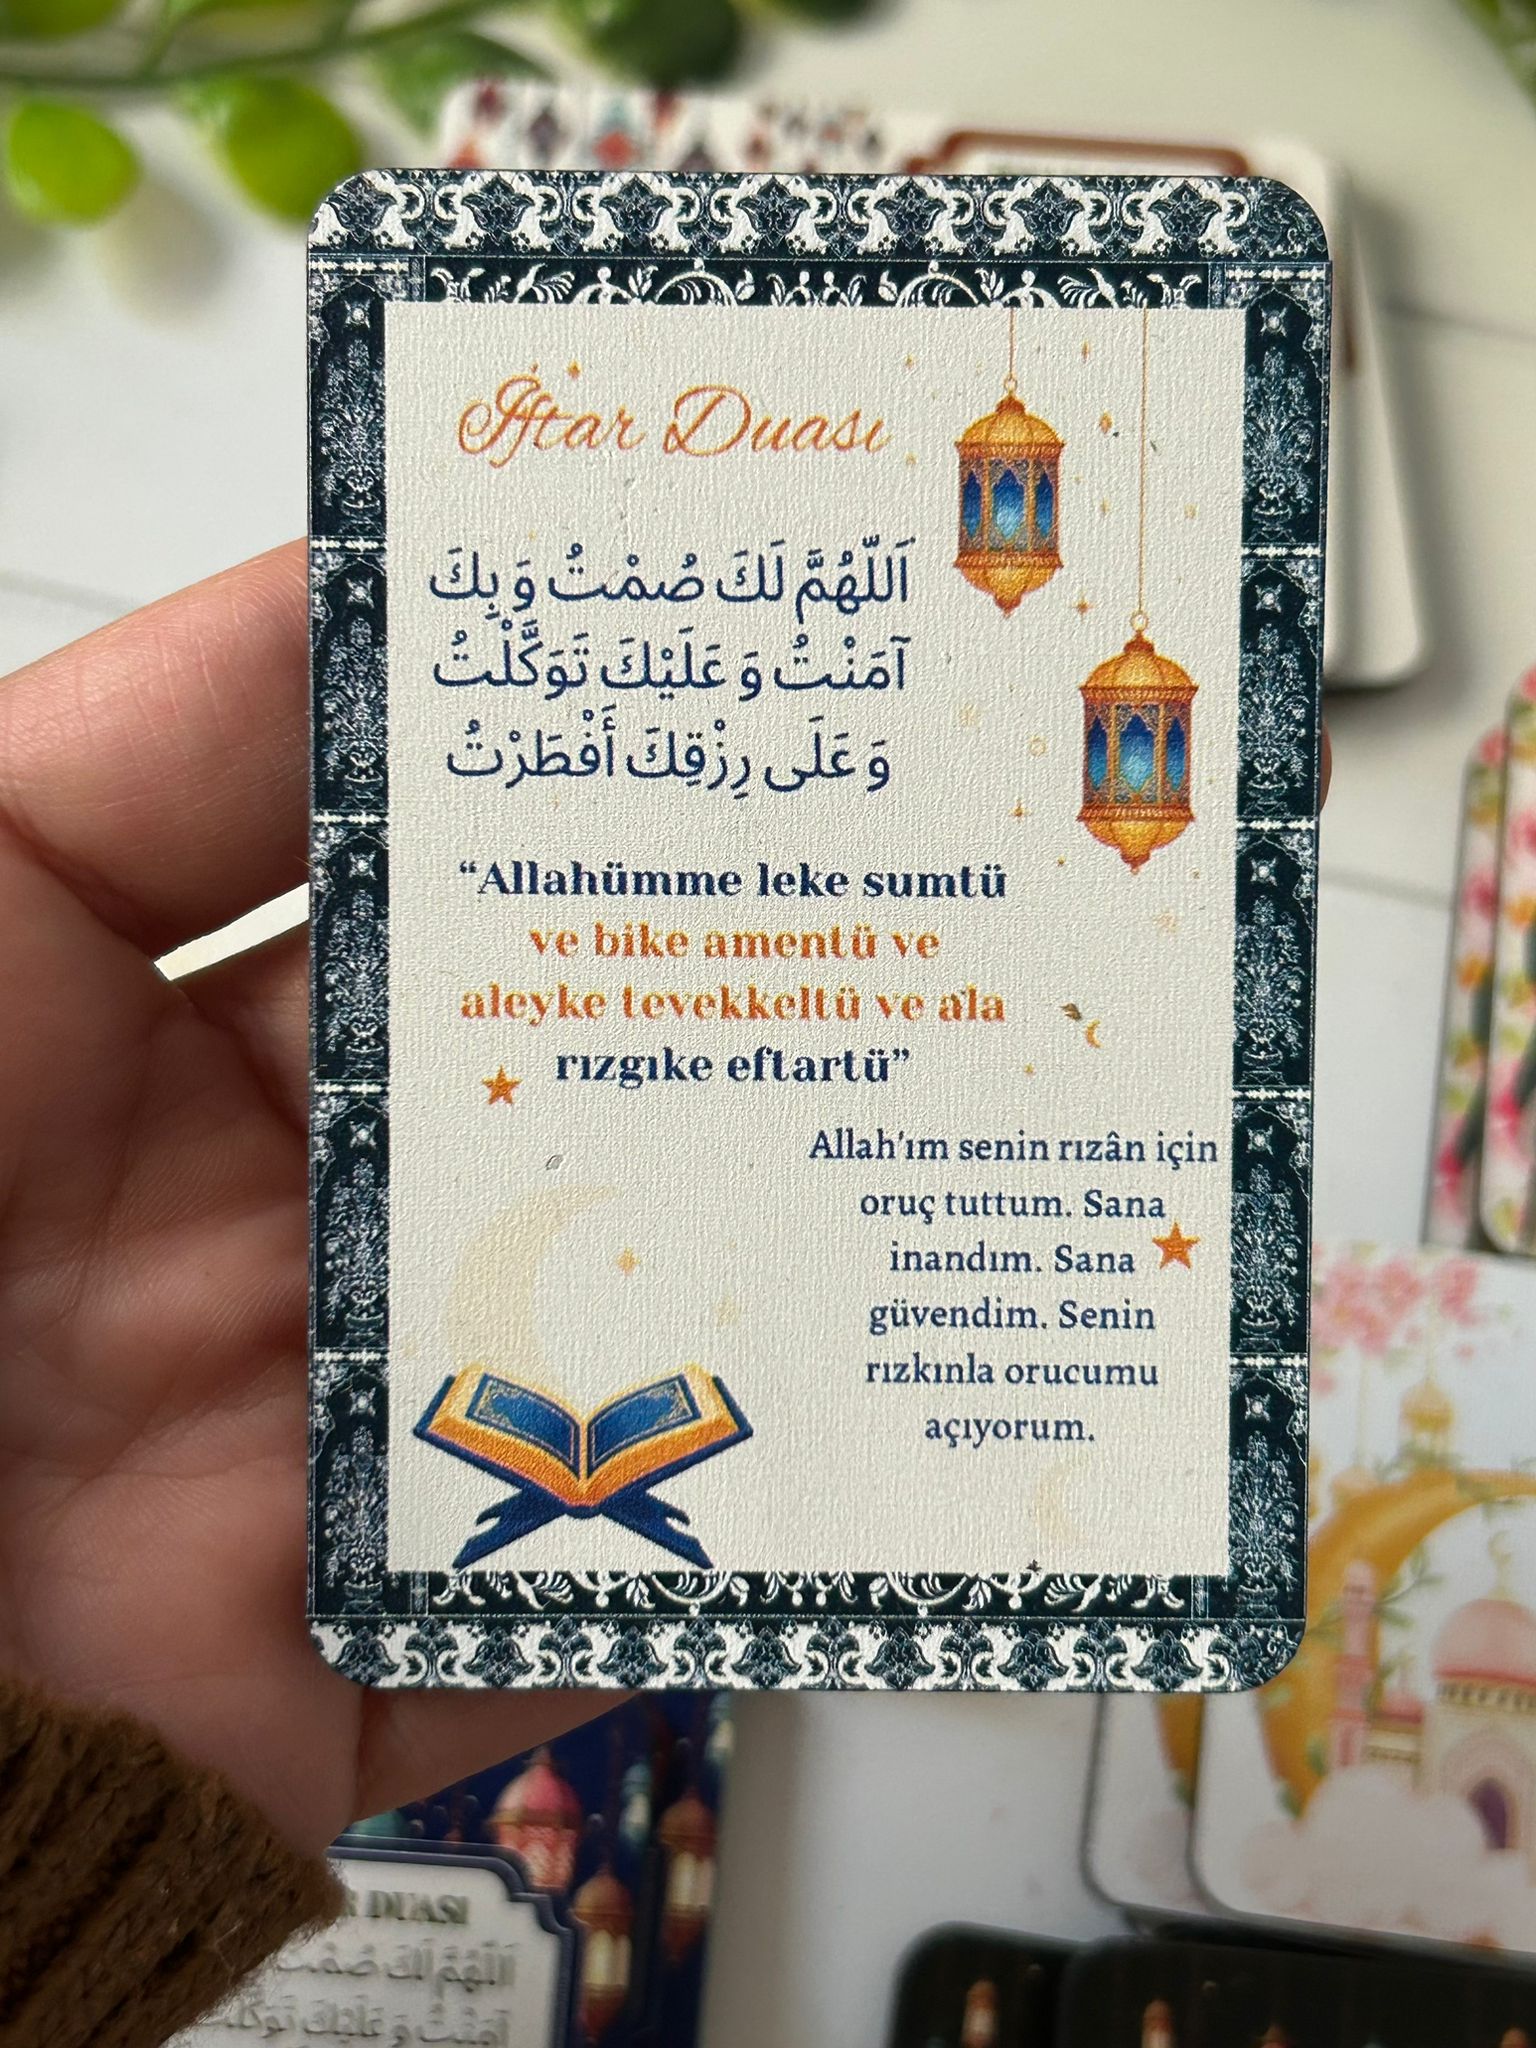 İftar Duası
اَللّهُمَّ لَكَ صُمْتُ وَ بِكَ
آمَنْتُ وَ عَلَيْكَ تَوَكَّلْتُ
وَ عَلَى رِزْقِكَ أَفْطَرْتُ
“Allahümme leke sumtü
ve bike amentü ve
aleyke tevekkeltü ve a'la
rızgıke eftartü”
Allah'ım senin rızân için
oruç tuttum. Sana
inandım. Sana
güvendim. Senin
rızkınla orucumu
açıyorum.
R DUASI
اَللّهُمَّ لَكَ صُمْتُ
آمَنْتُ وَ عَلَيْكَ تَوَكَّلْتُ